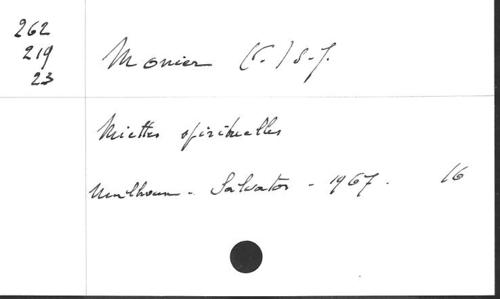 262
219
23
Monier (P.) S.J.
Miettes spirituelles
Mulhouse - Salvator - 1967. 16